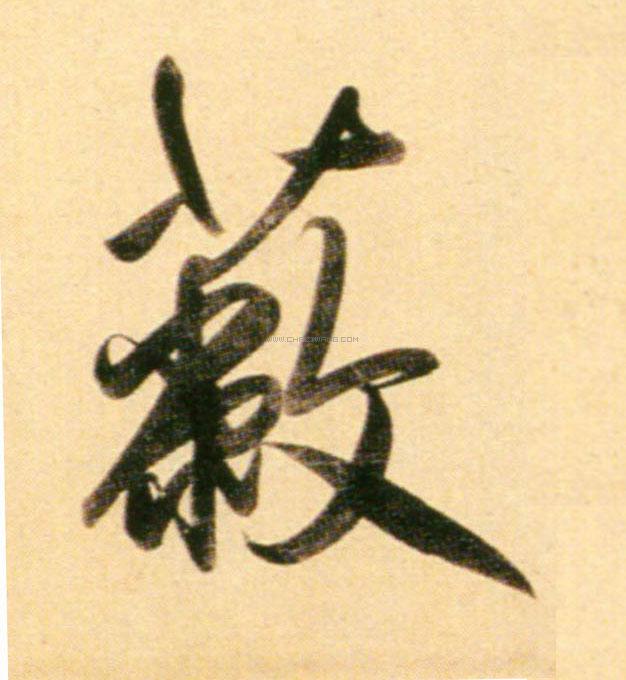 蔽
WWW.CHAZIWANG.COM